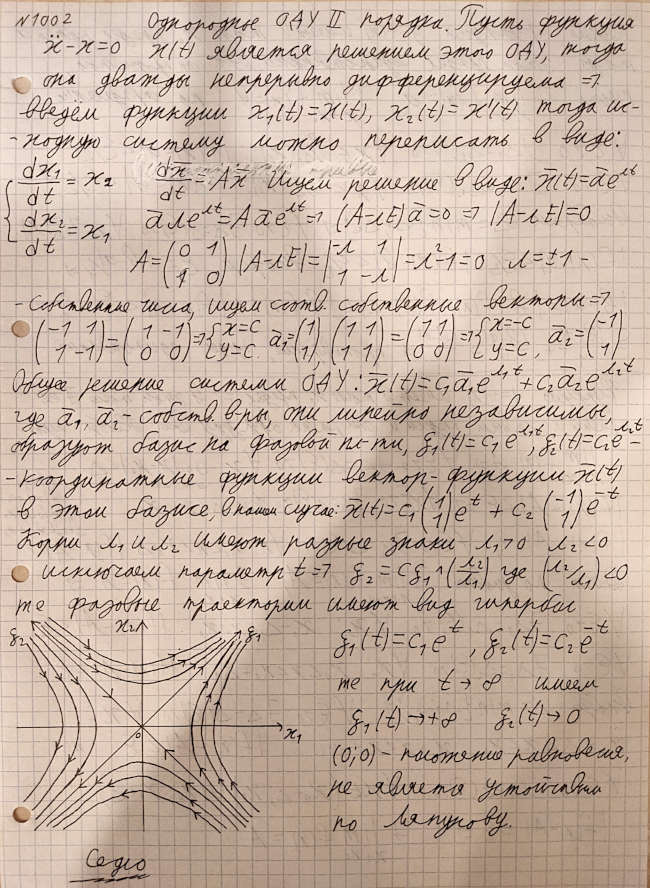 N1002 Однородное ОДУ II порядка. Пусть функция
ẍ-x=0 x(t) является решением этого ОДУ, тогда
она дважды непрерывно дифференцируема =>
введём функции x₁(t)=x(t), x₂(t)=x'(t) тогда ис-
-ходную систему можно переписать в виде:
{dx₁/dt = x₂ dx̄/dt = Ax̄ Ищем решение в виде: x̄(t)=āe^λt
dx₂/dt = x₁ āλe^λt=Aāe^λt => (A-λE)ā=0 => |A-λE|=0
A=(0 1; 1 0) |A-λE|=|-λ 1; 1 -λ|=λ²-1=0 λ=±1 -
-собственные числа, ищем соотв. собственные векторы =>
(-1 1; 1 -1)=(1 -1; 0 0)=>{x=c y=c. ā₁=(1; 1), (1 1; 1 1)=(1 1; 0 0)=>{x=-c y=c, ā₂=(-1; 1)
Общее решение системы ОДУ: x̄(t)=c₁ā₁e^λ₁t+c₂ā₂e^λ₂t
где ā₁, ā₂-собств. в-ры, они линейно независимы,
образуют базис на фазовой пл-ти, ξ₁(t)=c₁e^λ₁t, ξ₂(t)=c₂e^λ₂t -
-координатные функции вектор-функции x̄(t)
в этом базисе, в нашем случае: x̄(t)=c₁(1; 1)e^t + c₂(-1; 1)e^-t
Корни λ₁ и λ₂ имеют разные знаки λ₁>0 λ₂<0
исключаем параметр t => ξ₂=Cξ₁^(λ₂/λ₁) где (λ₂/λ₁)<0
те фазовые траектории имеют вид гипербол
ξ₂ x₂ ξ₁
0 x₁
ξ₁(t)=c₁e^t, ξ₂(t)=c₂e^-t
те при t→∞ имеем
ξ₁(t)→+∞ ξ₂(t)→0
(0;0)-положение равновесия,
не является устойчивым
по Ляпунову.
Седло